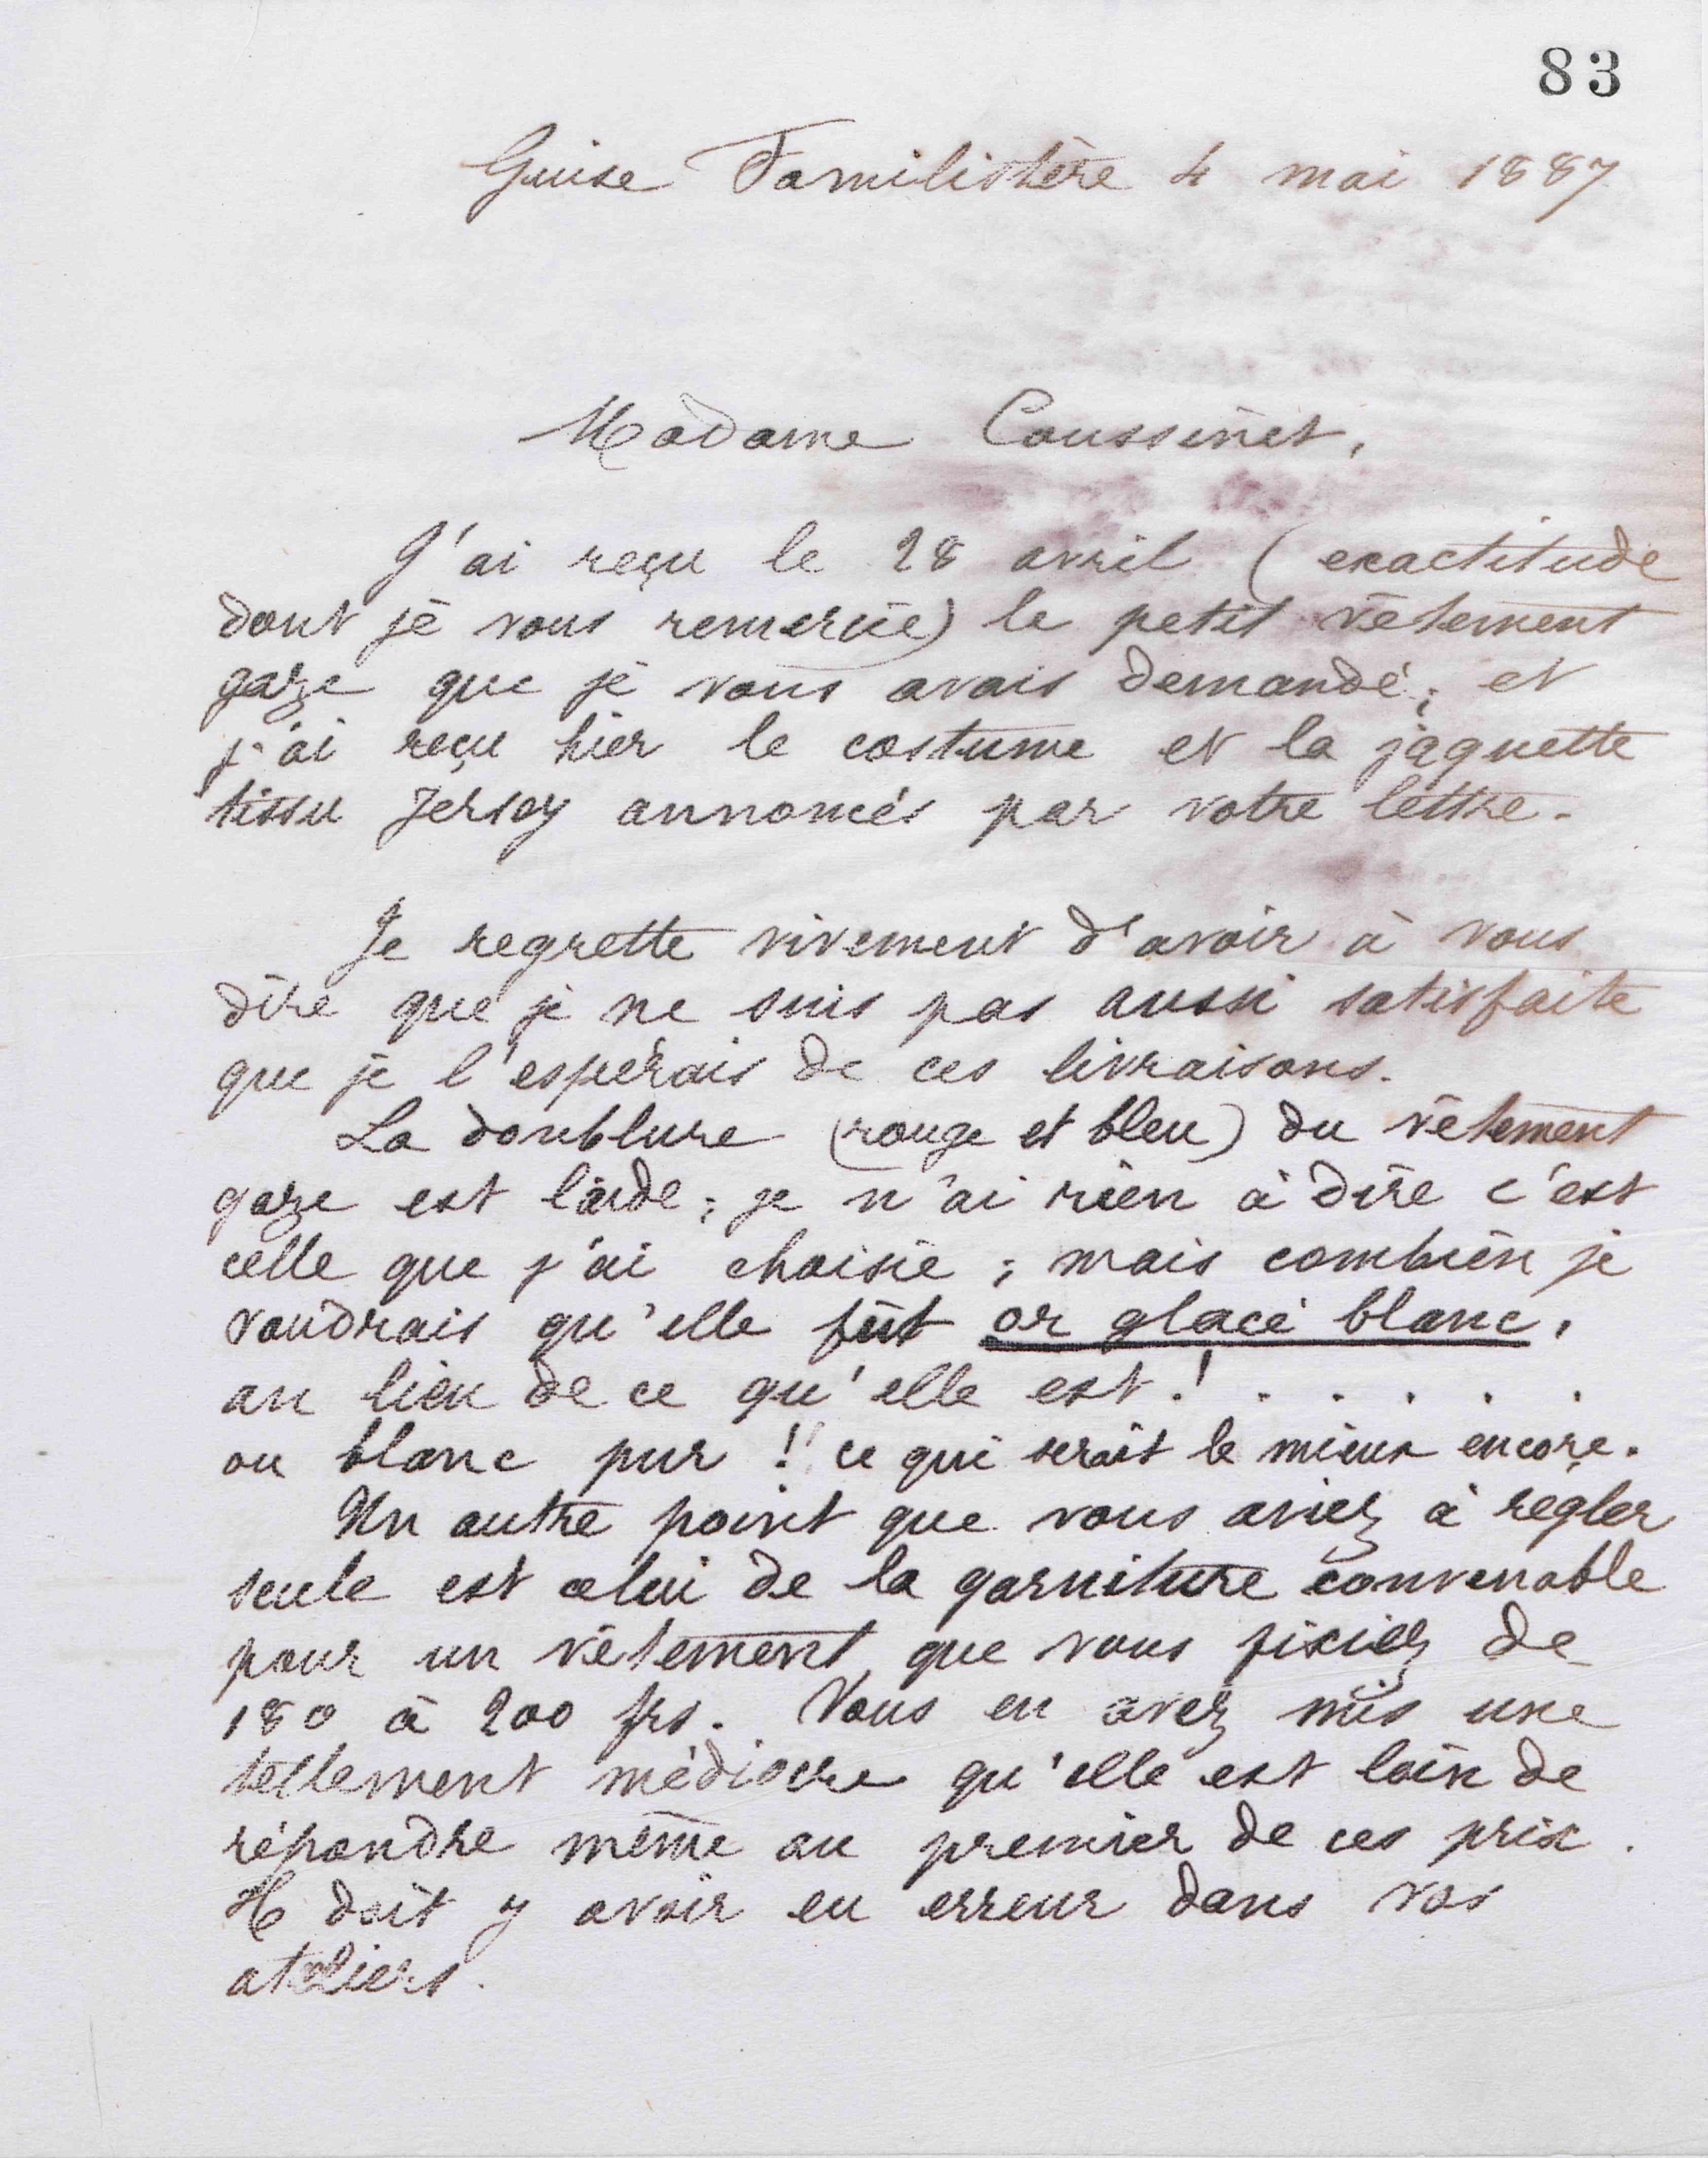 83
Guise Familistère 4 mai 1887
Madame Coussinet,
J'ai reçu le 28 avril (exactitude
dont je vous remercie) le petit vêtement
gaze que je vous avais demandé ; et
j'ai reçu hier le costume et la jaquette
tissu Jersey annoncés par votre lettre.
Je regrette vivement d'avoir à vous
dire que je ne suis pas aussi satisfaite
que je l'espérais de ces livraisons.
La doublure (rouge et bleu) du vêtement
gaze est laide ; je n'ai rien à dire c'est
celle que j'ai choisie ; mais combien je
voudrais qu'elle fût or glacé blanc,
au lieu de ce qu'elle est ! . . . . .
ou blanc pur ! ce qui serait le mieux encore.
Un autre point que vous aviez à régler
seule est celui de la garniture convenable
pour un vêtement que vous fixiez de
180 à 200 frs. Vous en avez mis une
tellement médiocre qu'elle est loin de
répondre même au premier de ces prix.
Il doit y avoir eu erreur dans vos
ateliers.